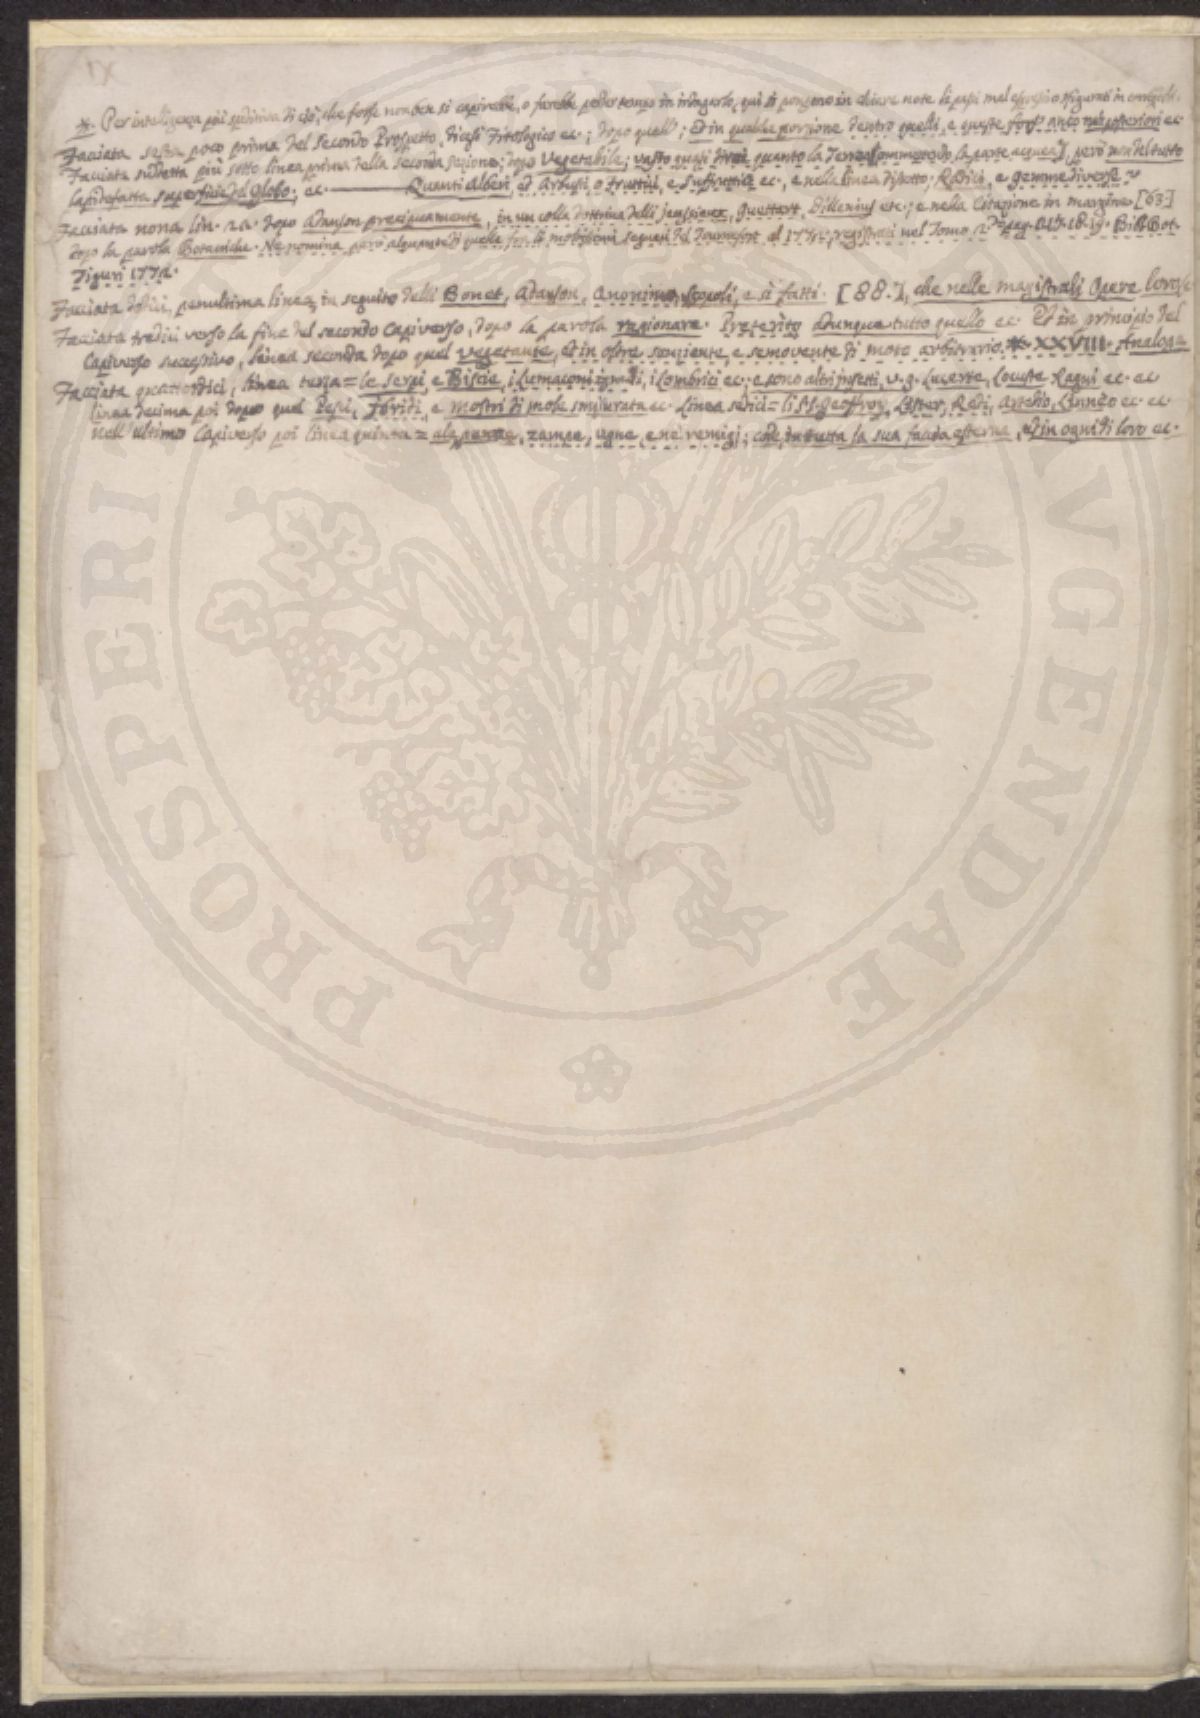 IX
*. Per intelligenza più speditiva di ciò, che forse non ben si capirebbe, o farebbe perder tempo in indagarlo, qui si pongono in chiare note li passi mal espressi o sfigurati in
Facciata sesta poco prima del Secondo Prospetto, dicasi Fitologico ec.; dopo quell'; Et in qualche porzione dentro quelli, e queste fors' anco nei posteriori ec
Facciata sudetta più sotto linea prima della seconda sezione; dopo Vegetabile; vasto quasi direi quanto la Terra, però non del tutto
lapidefatta superficie del Globo; ec. Quanti alberi, ed Arbusti, o Frutici, e Suffrutici ec., e nella linea disotto; Radici, e gemme diverse
Facciata nona lin. 22. dopo Adanson precipuamente, in un colla dottrina delli Jeussieux, Guettard, Dillenius etc.; e nella Citazione in margine [63]
dopo la parola Botaniche. Ne nomina però alquanti di quella seguaci del Tournefort al registrati nel Tomo 2.do pag. Bibl. Bot.
Tiguri 1772.
Facciata dodici, penultima linea, in seguito delli Bonet, Adanson, Anonimo, Scopoli, e sì fatti. [88.], che nelle magistrali Opere loro
Facciata tredici verso la fine del secondo Capiverso, dopo la parola ragionare. Preterito adunque tutto quello ec. Et in principio del
Capiverso successivo, linea seconda dopo quel vegetante, et in oltre senziente e semovente di moto arbitrario. * XXVIII. Analoga
Facciata quattordici, linea terza = le Serpi, e Biscie, i Lumaconi ignudi, i Lombrici ec; e sono altri insetti, v. g. Lucerte, Locuste Ragni ec. ec
linea decima poi dopo quel Pesci, Ibridi, e mostri di mole smisurata ec. Linea sedici = li SS. Geoffroy, Lister, Redi, Artedio, Linneo ec. ec.
nell' ultimo Capiverso poi linea quinta = ale penne, zampe, ugne, e nè remigj; cose in tutta la sua faccia esterna, et in ogni di loro ec.
PROSPERITATI AVGENDAE